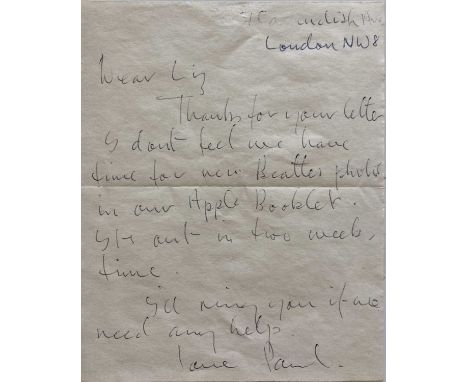 London NW8
Dear Liz
Thanks for your letter
I dont feel we have
time for new Beatles photos
in our Apple Booklet.
Its out in two weeks,
time.
I'll ring you if we
need any help
love Paul.